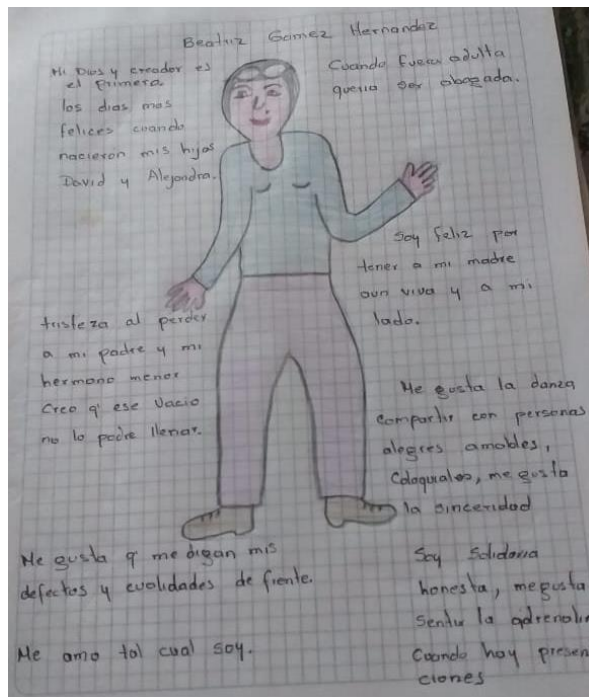 Beatriz Gomez Hernandez
Mi Dios y creador es
el primera
los dias mas
felices cuando
nacieron mis hijos
David y Alejandra.
Cuando fuera adulta
queria ser abogada.
Soy feliz por
tener a mi madre
aun viva y a mi
lado.
tristeza al perder
a mi padre y mi
hermano menor
Creo q' ese vacio
no lo podre llenar.
Me gusta la danza
compartir con personas
alegres amables,
Coloquiales, me gusta
la sinceridad
Me gusta q' me digan mis
defectos y cualidades de frente.
Me amo tal cual soy.
Soy Solidaria
honesta, me gusta
Sentir la adrenalin
Cuando hay presen
ciones